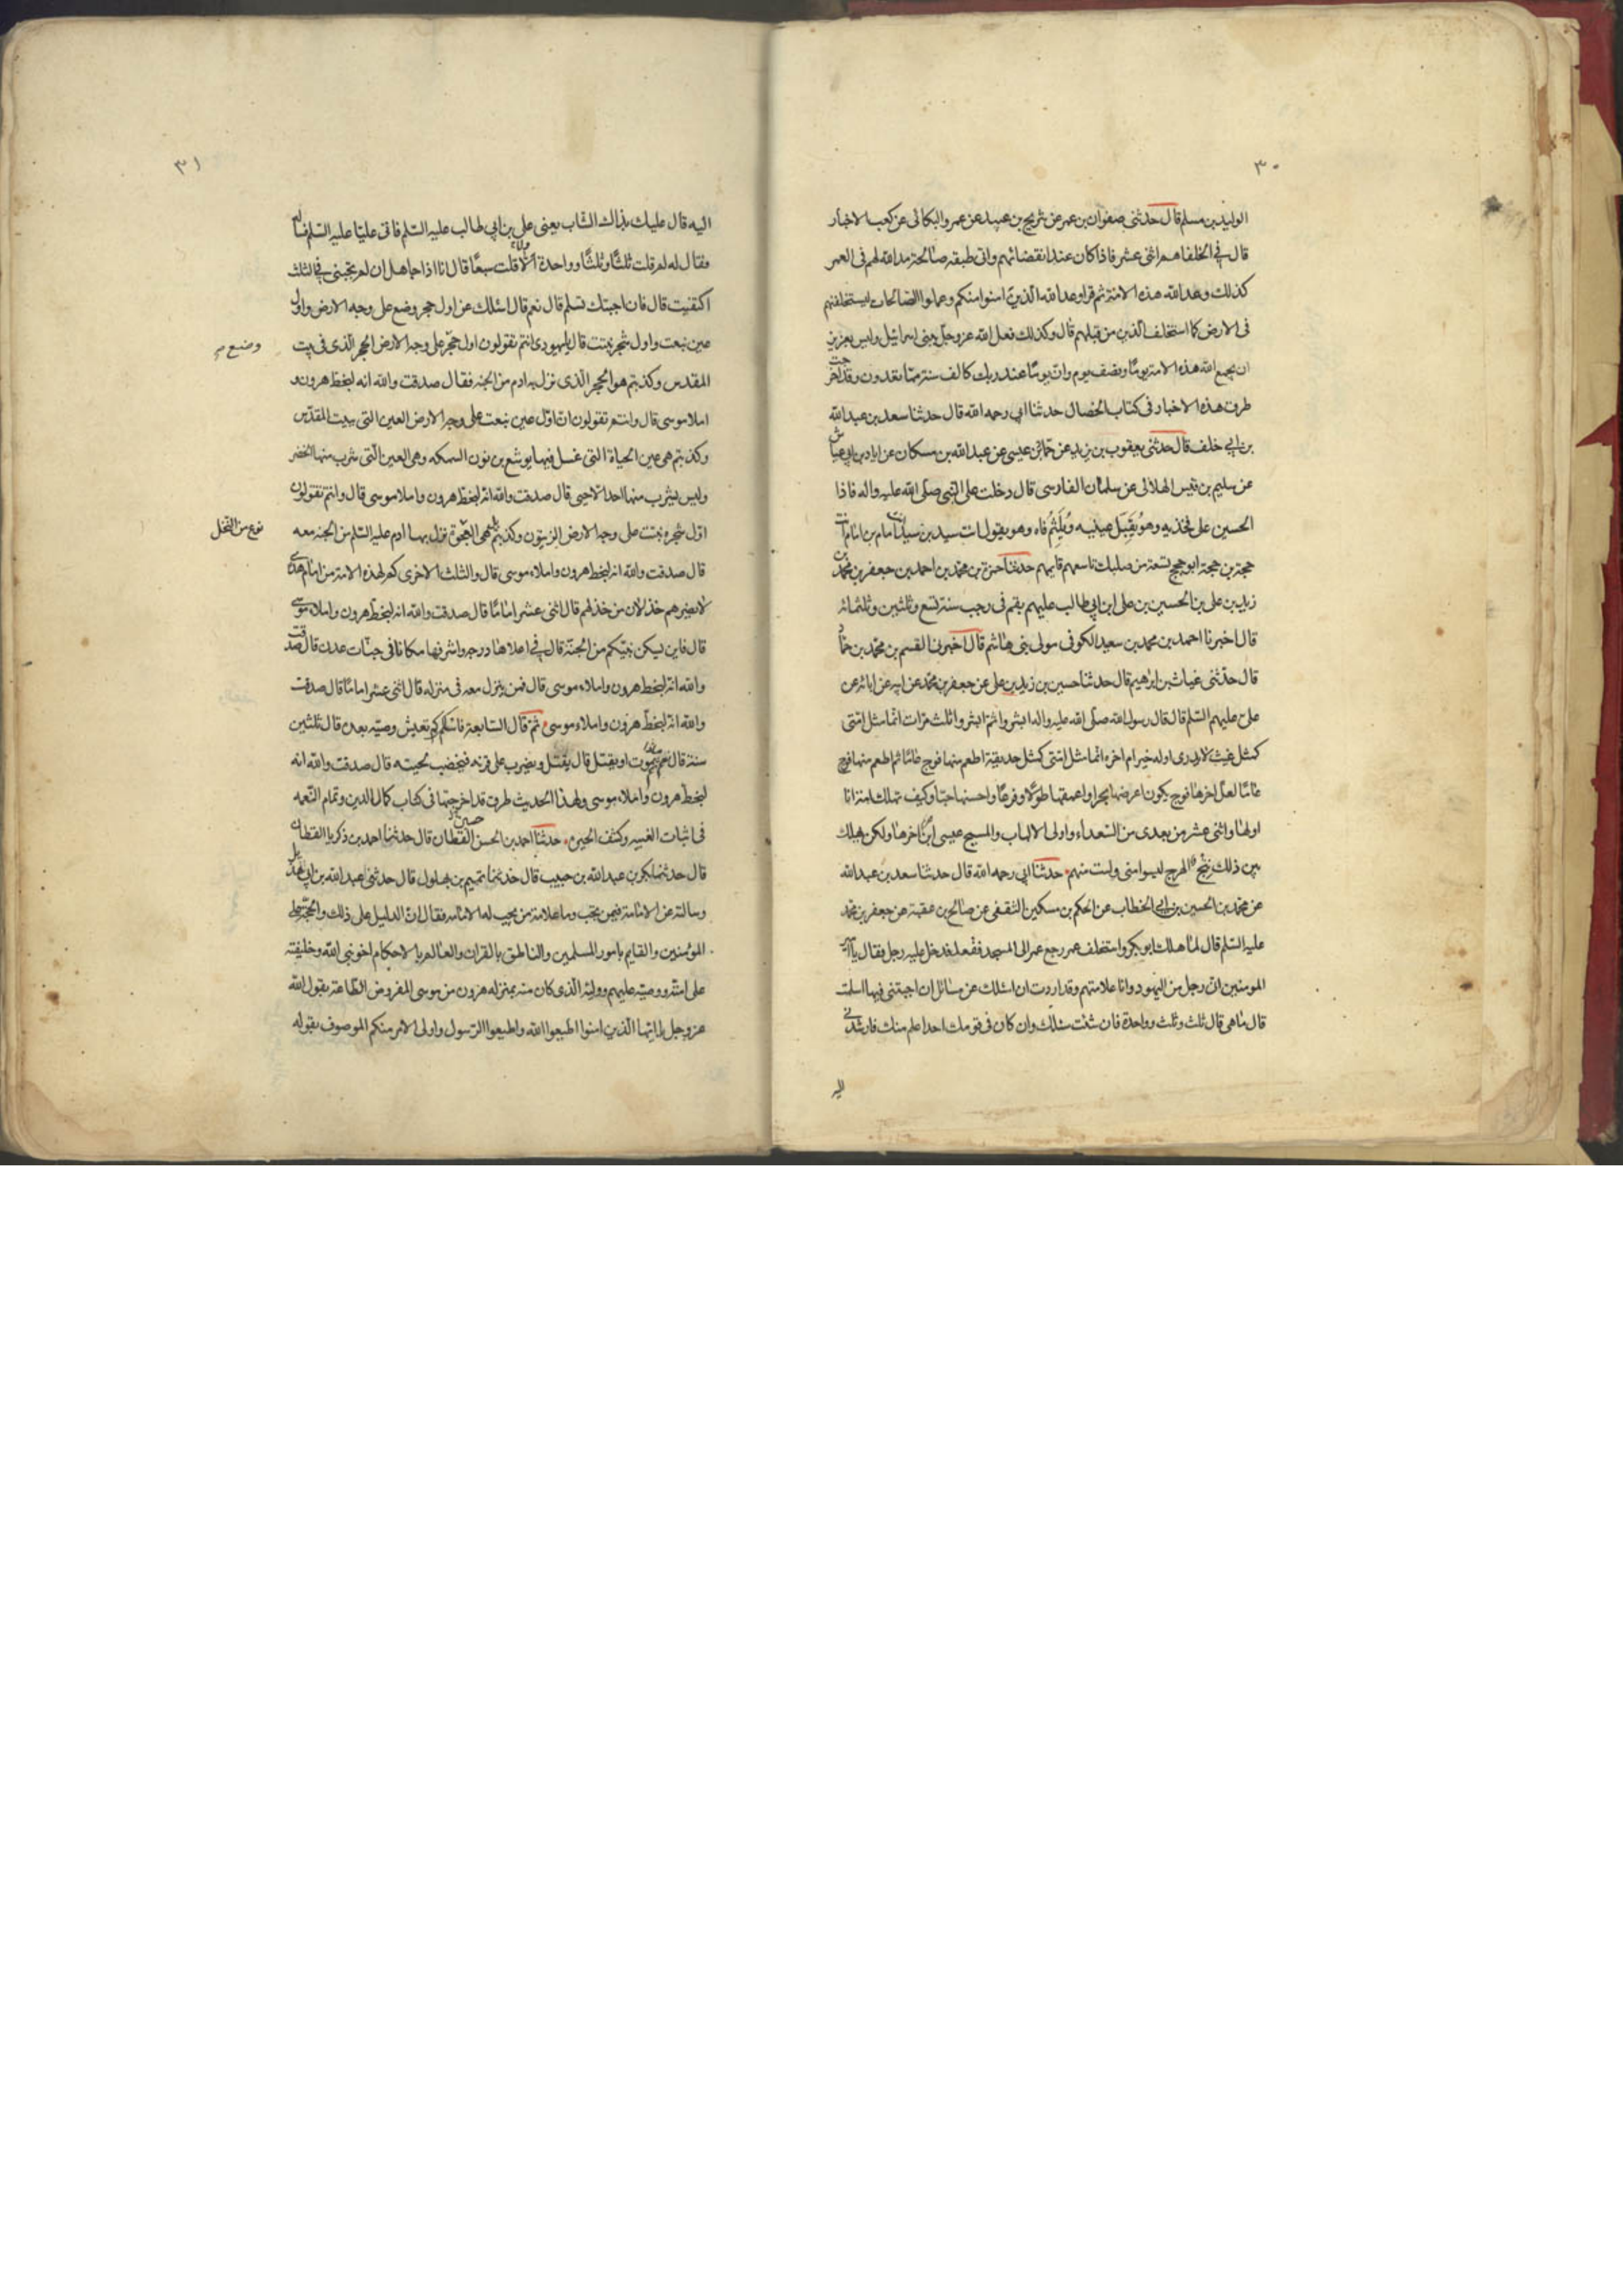 ٣٠
الوليد بن مسلم قال حدثنى صفوان بن عمر عن شريح بن عبيد عن عمرو البكالى عن كعب الاخبار
قال فى الخلفا هم اثنى عشر فاذا كان عند انقضائهم واتى طبقه صالحة مد الله لهم فى العمر
كذلك وعد الله هذه الامة ثم قرا وعد الله الذين امنوا منكم وعملوا الصالحات ليستخلفنهم
فى الارض كما استخلف الذين من قبلهم قال وكذلك فعل الله عز وجل ببنى اسرائيل وليس بعزيز
ان يجمع الله هذه الامة يوما او نصف يوم وان يوما عند ربك كالف سنة مما تعدون وقد اخرجت
طرق هذه الاخبار فى كتاب الخصال حدثنا ابى رحمه الله قال حدثنا سعد بن عبد الله
بن ابى خلف قال حدثنى يعقوب بن يزيد عن حماد بن عيسى عن عبد الله بن مسكان عن ابان بن ابى عياش
عن سليم بن قيس الهلالى عن سلمان الفارسى قال دخلت على النبى صلى الله عليه واله فاذا
الحسين على فخذيه وهو يُقَبِّل عينيه ويُلَثِّمُ فاه وهو يقول انت سيد بن سيد انت امام بن امام انت
حجة بن حجة ابو حجج تسعة من صلبك تاسعهم قايمهم حدثنا حمزة بن محمد بن احمد بن جعفر بن محمد بن
زيد بن على بن الحسين بن على ابن ابى طالب عليهم بقم فى رجب سنة تسع وثلثين وثلثمائة
قال اخبرنا احمد بن محمد بن سعيد الكوفى مولى بنى هاشم قال اخبرنا القسم بن محمد بن حماد
قال حدثنى غياث بن ابرهيم قال حدثنا حسين بن زيد بن على عن جعفر بن محمد عن ابيه عن ابائه عن
على عليهم السلم قال قال رسول الله صلى الله عليه واله ابشروا ثم ابشروا ثلث مرات انما مثل امتى
كمثل غيث لا يدرى اوله خير ام اخره انما مثل امتى كمثل حديقة اطعم منها فوج عاما ثم اطعم منها فوج
عاما لعل اخرها فوج يكون اعرضها بحرا واعمقها طولا وفرعا واحسنها حبا وكيف تهلك امة انا
اولها واثنى عشر من بعدى من السعداء واولى الالباب والمسيح عيسى ابن اخرها ولكن يهلك
بين ذلك نتج الهرج ليسوا منى ولست منهم حدثنا ابى رحمه الله قال حدثنا سعد بن عبد الله
عن محمد بن الحسين بن ابى الخطاب عن الحكم بن مسكين الثقفى عن صالح بن عقبة عن جعفر بن محمد
عليه السلم قال لما هلك ابو بكر واستخلف عمر رجع عمر الى المسجد فقعد فدخل عليه رجل فقال يا امير
المومنين انى رجل من اليهود وانا علامتهم وقد اردت ان اسئلك عن مسائل ان اجبتنى فيها اسلمت
قال ما هى قال ثلث وثلث وواحدة فان شئت سئلتك وان كان فى قومك احدا علم منك فارشدنى
اليه
٣١
اليه قال عليك بذاك الشاب يعنى على بن ابى طالب عليه السلم فاتى عليا عليه السلم فساله
فقال له لم قلت ثلثا وثلثا وواحدة الا قلت سبعا قال انا اذا جاهل ان لم تجبنى فى الثلث
اكتفيت قال فان اجبتك تسلم قال نعم قال اسئلك عن اول حجر وضع على وجه الارض واول
عين نبعت واول شجر نبتت قال يا يهودى انتم تقولون اول حجر على وجه الارض الحجر الذى فى بيت
وضع
المقدس وكذبتم هو الحجر الذى نزل به ادم من الجنه فقال صدقت والله انه لبخط هرون و
املا موسى قال وانتم تقولون ان اول عين نبعت على وجه الارض العين التى ببيت المقدس
وكذبتم هى عين الحياة التى غسل فيها يوشع بن نون السمكه وهى العين التى شرب منها الخضر
وليس يشرب منها احد الا حيى قال صدقت والله انه لبخط هرون واملا موسى قال وانتم تقولون
اول شجره نبتت على وجه الارض الزيتون وكذبتم هى العجوة نزل بها ادم عليه السلم من الجنه معه
نوع من النخل
قال صدقت والله انه لبخط هرون واملاء موسى قال والثلث الاخرى كم لهذه الامة من امام هدى
لا يضرهم خذلان من خذلهم قال اثنى عشر اماما قال صدقت والله انه لبخط هرون واملاء موسى
قال فاين يسكن نبيكم من الجنة قال فى اعلاها درجه واشرفها مكانا فى جنات عدن قال صدقت
والله انه لبخط هرون واملاء موسى قال فمن ينزل معه فى منزله قال اثنى عشر اماما قال صدقت
والله انه لبخط هرون واملاء موسى ثم قال السابعة فاسئلكم كم تعيش وصيه بعده قال ثلثين
سنة قال ثم يموت او يقتل قال يقتل ويضرب على قرنه فتخضب لحيته قال صدقت والله انه
لبخط هرون واملاء موسى ولهذا الحديث طرق قد اخرجتها فى كتاب كمال الدين وتمام النعمه
فى اثبات الغيبه وكشف الحيره حدثنا احمد بن الحسن القطان قال حدثنا احمد بن زكريا القطان
قال حدثنا بكر بن عبد الله بن حبيب قال حدثنا تميم بن بهلول قال حدثنى عبد الله بن ابى هذيل
وسالته عن الامامة فيمن تجب وما علامة من يجب له الامامه فقال ان الدليل على ذلك والحجة على
المؤمنين والقايم بامور المسلمين والناطق بالقران والعالم بالاحكام اخو نبى الله وخليفته
على امته ووصيه عليهم ووليه الذى كان منه بمنزله هرون من موسى المفروض الطاعة بقول الله
عز وجل يا ايها الذين امنوا اطيعوا الله واطيعوا الرسول واولى الامر منكم الموصوف بقوله